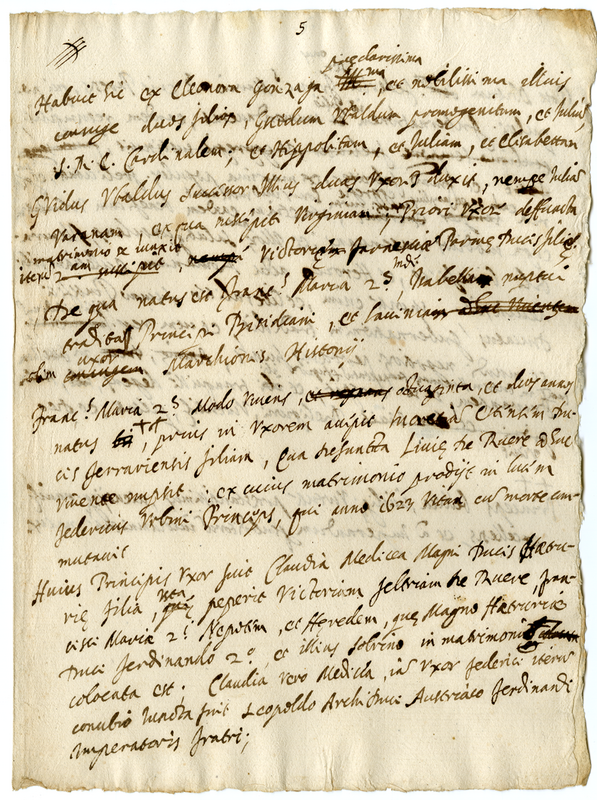 5
præclarissima
Habuit hic ex Eleonora Gonzaga et nobilissima illius
coniuge duos filios, Guidum Ubaldum primogenitum, et Julium
S. R. E. Cardinalem, et Hyppolitam, et Juliam, et Elisabettam
Guidus Ubaldus successor illius duas Uxores duxit, nempe Juliam
Varanam, ex qua suscepit Virginiam, Priori Uxore deffuncta
matrimonio se iunxit
iterum Victoriam Farnesiam Parmę Ducis filię
De qua natus est Franc.s Maria 2.s Isabellam nuptui
traditas Principi Bisidiani, et Laviniam
uxor
olim Marchionis Histonij
Franc.s Maria 2.s Modo vivens, octuaginta, et duos annos
natus, prius in Uxorem accepit Lucretiam Estensem Du-
cis Ferrariensis filiam, Qua defuncta Livię de Ruere adhuc
vivente nupsit, ex cuius matrimonio prodijt in lucem
Federicus Urbini Princeps, qui anno 1623 vitam cum morte com-
mutavit
Huius Principis Uxor fuit Claudia Medicea Magni Ducis Hetru-
rię filia, peperit Victoriam Feltriam de Ruere Fran-
cisci Marię 2.s Nepotem, et Heredem, quę Magno Hetrurię
Duci Ferdinando 2.o, et illius sobrino in matrimonio
colocata est. Claudia vero Medicea, Uxor Federici iterum
conubio iuncta fuit Leopoldo Archiduci Austriaco Ferdinandi
Imperatoris fratri;